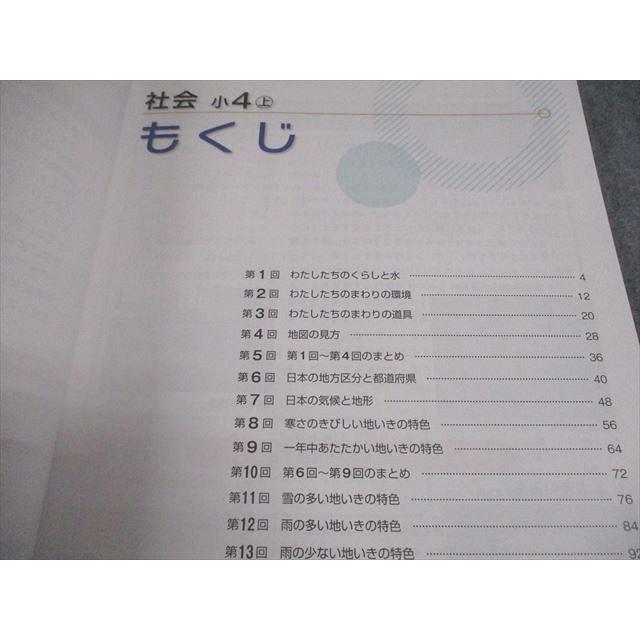 社会 小4上
もくじ
第1回 わたしたちのくらしと水 4
第2回 わたしたちのまわりの環境 12
第3回 わたしたちのまわりの道具 20
第4回 地図の見方 28
第5回 第1回〜第4回のまとめ 36
第6回 日本の地方区分と都道府県 40
第7回 日本の気候と地形 48
第8回 寒さのきびしい地いきの特色 56
第9回 一年中あたたかい地いきの特色 64
第10回 第6回〜第9回のまとめ 72
第11回 雪の多い地いきの特色 76
第12回 雨の多い地いきの特色 84
第13回 雨の少ない地いきの特色 92